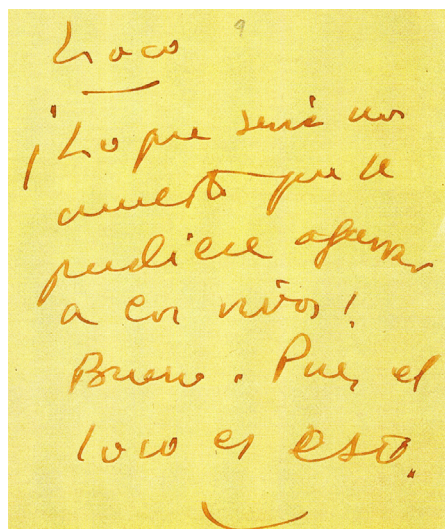 9
Loco
¡Lo que sería un
muerto que se
pudiese agarrar
a los vivos!
Bueno. Pues el
loco es eso.